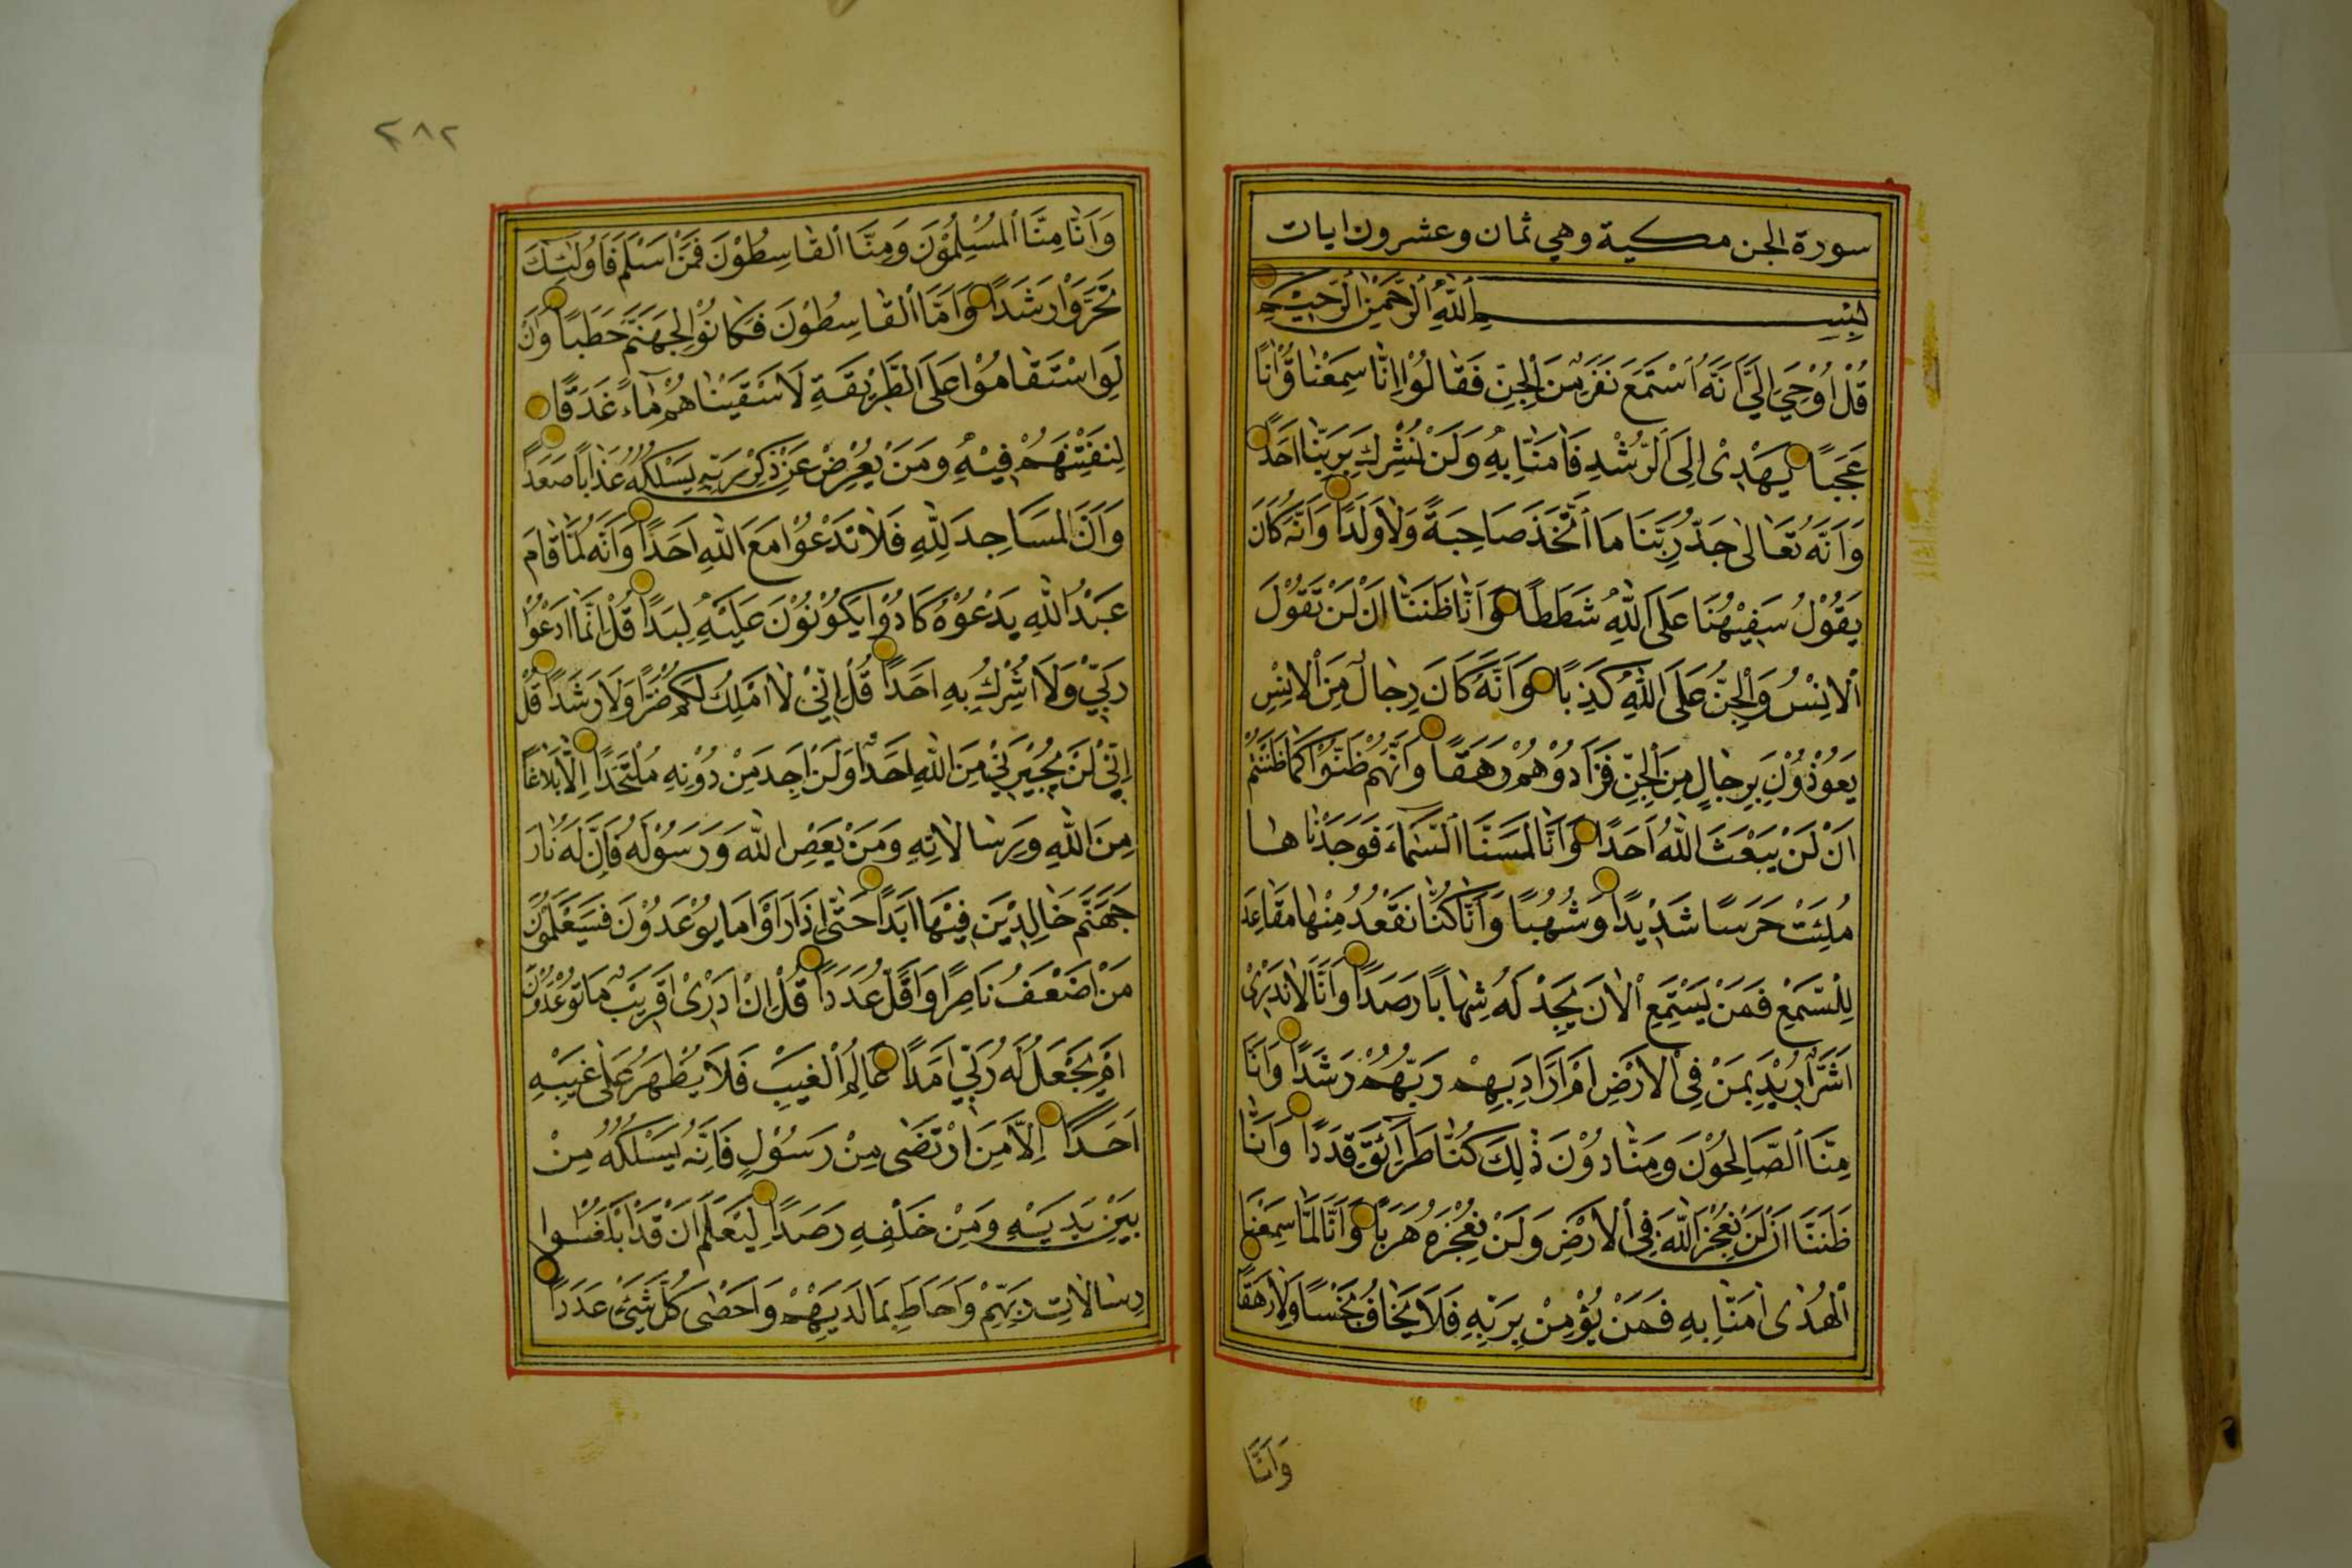 سورة الجن مكية وهي ثمان وعشرون ايات
بِسْمِ اللّٰهِ الرَّحْمٰنِ الرَّحِيْمِ
قُلْ اُوْحِيَ اِلَيَّ اَنَّهُ اسْتَمَعَ نَفَرٌ مِنَ الْجِنِّ فَقَالُوْا اِنَّا سَمِعْنَا قُرْاٰنًا
عَجَبًا يَهْدِىْ اِلَى الرُّشْدِ فَاٰمَنَّا بِهِ وَلَنْ نُشْرِكَ بِرَبِّنَا اَحَدًا
وَاَنَّهُ تَعَالٰى جَدُّ رَبِّنَا مَا اتَّخَذَ صَاحِبَةً وَلَا وَلَدًا وَاَنَّهُ كَانَ
يَقُوْلُ سَفِيْهُنَا عَلَى اللّٰهِ شَطَطًا وَاَنَّا ظَنَنَّا اَنْ لَنْ تَقُوْلَ
الْاِنْسُ وَالْجِنُّ عَلَى اللّٰهِ كَذِبًا وَاَنَّهُ كَانَ رِجَالٌ مِنَ الْاِنْسِ
يَعُوْذُوْنَ بِرِجَالٍ مِنَ الْجِنِّ فَزَادُوْهُمْ رَهَقًا وَاَنَّهُمْ ظَنُّوْا كَمَا ظَنَنْتُمْ
اَنْ لَنْ يَبْعَثَ اللّٰهُ اَحَدًا وَاَنَّا لَمَسْنَا السَّمَاءَ فَوَجَدْنَاهَا
مُلِئَتْ حَرَسًا شَدِيْدًا وَشُهُبًا وَاَنَّا كُنَّا نَقْعُدُ مِنْهَا مَقَاعِدَ
لِلسَّمْعِ فَمَنْ يَسْتَمِعِ الْاٰنَ يَجِدْ لَهُ شِهَابًا رَصَدًا وَاَنَّا لَا نَدْرِىْ
اَشَرٌّ اُرِيْدَ بِمَنْ فِى الْاَرْضِ اَمْ اَرَادَ بِهِمْ رَبُّهُمْ رَشَدًا وَاَنَّا
مِنَّا الصَّالِحُوْنَ وَمِنَّا دُوْنَ ذٰلِكَ كُنَّا طَرَائِقَ قِدَدًا وَاَنَّا
ظَنَنَّا اَنْ لَنْ نُعْجِزَ اللّٰهَ فِى الْاَرْضِ وَلَنْ نُعْجِزَهُ هَرَبًا وَاَنَّا لَمَّا سَمِعْنَا
الْهُدٰى اٰمَنَّا بِهِ فَمَنْ يُؤْمِنْ بِرَبِّهِ فَلَا يَخَافُ بَخْسًا وَلَا رَهَقًا
وَاَنَّا
٢٨٢
وَاَنَّا مِنَّا الْمُسْلِمُوْنَ وَمِنَّا الْقَاسِطُوْنَ فَمَنْ اَسْلَمَ فَاُولٰئِكَ
تَحَرَّوْا رَشَدًا وَاَمَّا الْقَاسِطُوْنَ فَكَانُوْا لِجَهَنَّمَ حَطَبًا وَاَنْ
لَوِ اسْتَقَامُوْا عَلَى الطَّرِيْقَةِ لَاَسْقَيْنَاهُمْ مَاءً غَدَقًا
لِنَفْتِنَهُمْ فِيْهِ وَمَنْ يُعْرِضْ عَنْ ذِكْرِ رَبِّهِ يَسْلُكْهُ عَذَابًا صَعَدًا
وَاَنَّ الْمَسَاجِدَ لِلّٰهِ فَلَا تَدْعُوْا مَعَ اللّٰهِ اَحَدًا وَاَنَّهُ لَمَّا قَامَ
عَبْدُ اللّٰهِ يَدْعُوْهُ كَادُوْا يَكُوْنُوْنَ عَلَيْهِ لِبَدًا قُلْ اِنَّمَا اَدْعُوْا
رَبِّيْ وَلَا اُشْرِكُ بِهِ اَحَدًا قُلْ اِنِّيْ لَا اَمْلِكُ لَكُمْ ضَرًّا وَلَا رَشَدًا قُلْ
اِنِّيْ لَنْ يُجِيْرَنِيْ مِنَ اللّٰهِ اَحَدٌ وَلَنْ اَجِدَ مِنْ دُوْنِهِ مُلْتَحَدًا اِلَّا بَلَاغًا
مِنَ اللّٰهِ وَرِسَالَاتِهِ وَمَنْ يَعْصِ اللّٰهَ وَرَسُوْلَهُ فَاِنَّ لَهُ نَارَ
جَهَنَّمَ خَالِدِيْنَ فِيْهَا اَبَدًا حَتّٰى اِذَا رَاَوْا مَا يُوْعَدُوْنَ فَسَيَعْلَمُوْنَ
مَنْ اَضْعَفُ نَاصِرًا وَاَقَلُّ عَدَدًا قُلْ اِنْ اَدْرِىْ اَقَرِيْبٌ مَا تُوْعَدُوْنَ
اَمْ يَجْعَلُ لَهُ رَبِّيْ اَمَدًا عَالِمُ الْغَيْبِ فَلَا يُظْهِرُ عَلٰى غَيْبِهِ
اَحَدًا اِلَّا مَنِ ارْتَضٰى مِنْ رَسُوْلٍ فَاِنَّهُ يَسْلُكُهُ مِنْ
بَيْنِ يَدَيْهِ وَمِنْ خَلْفِهِ رَصَدًا لِيَعْلَمَ اَنْ قَدْ اَبْلَغُوْا
رِسَالَاتِ رَبِّهِمْ وَاَحَاطَ بِمَا لَدَيْهِمْ وَاَحْصٰى كُلَّ شَيْئٍ عَدَدًا